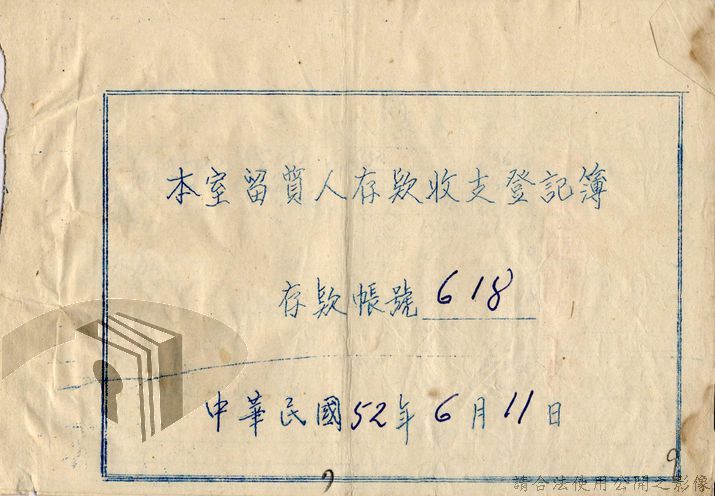 本室留質人存款收支登記簿
存款帳號 618
中華民國52年6月11日
9
請合法使用公開之影像